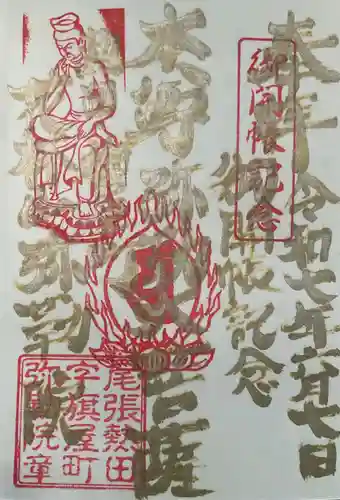 奉拝 令和七年六月七日
御開帳記念
御開帳記念
本尊弥勒菩薩
弥勒院
尾張熱田
字旗屋町
弥勒院章